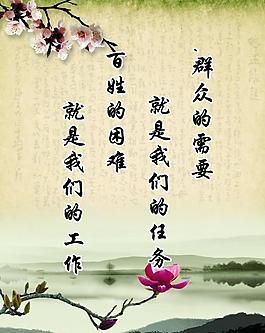 群众的需要
就是我们的任务
百姓的困难
就是我们的工作